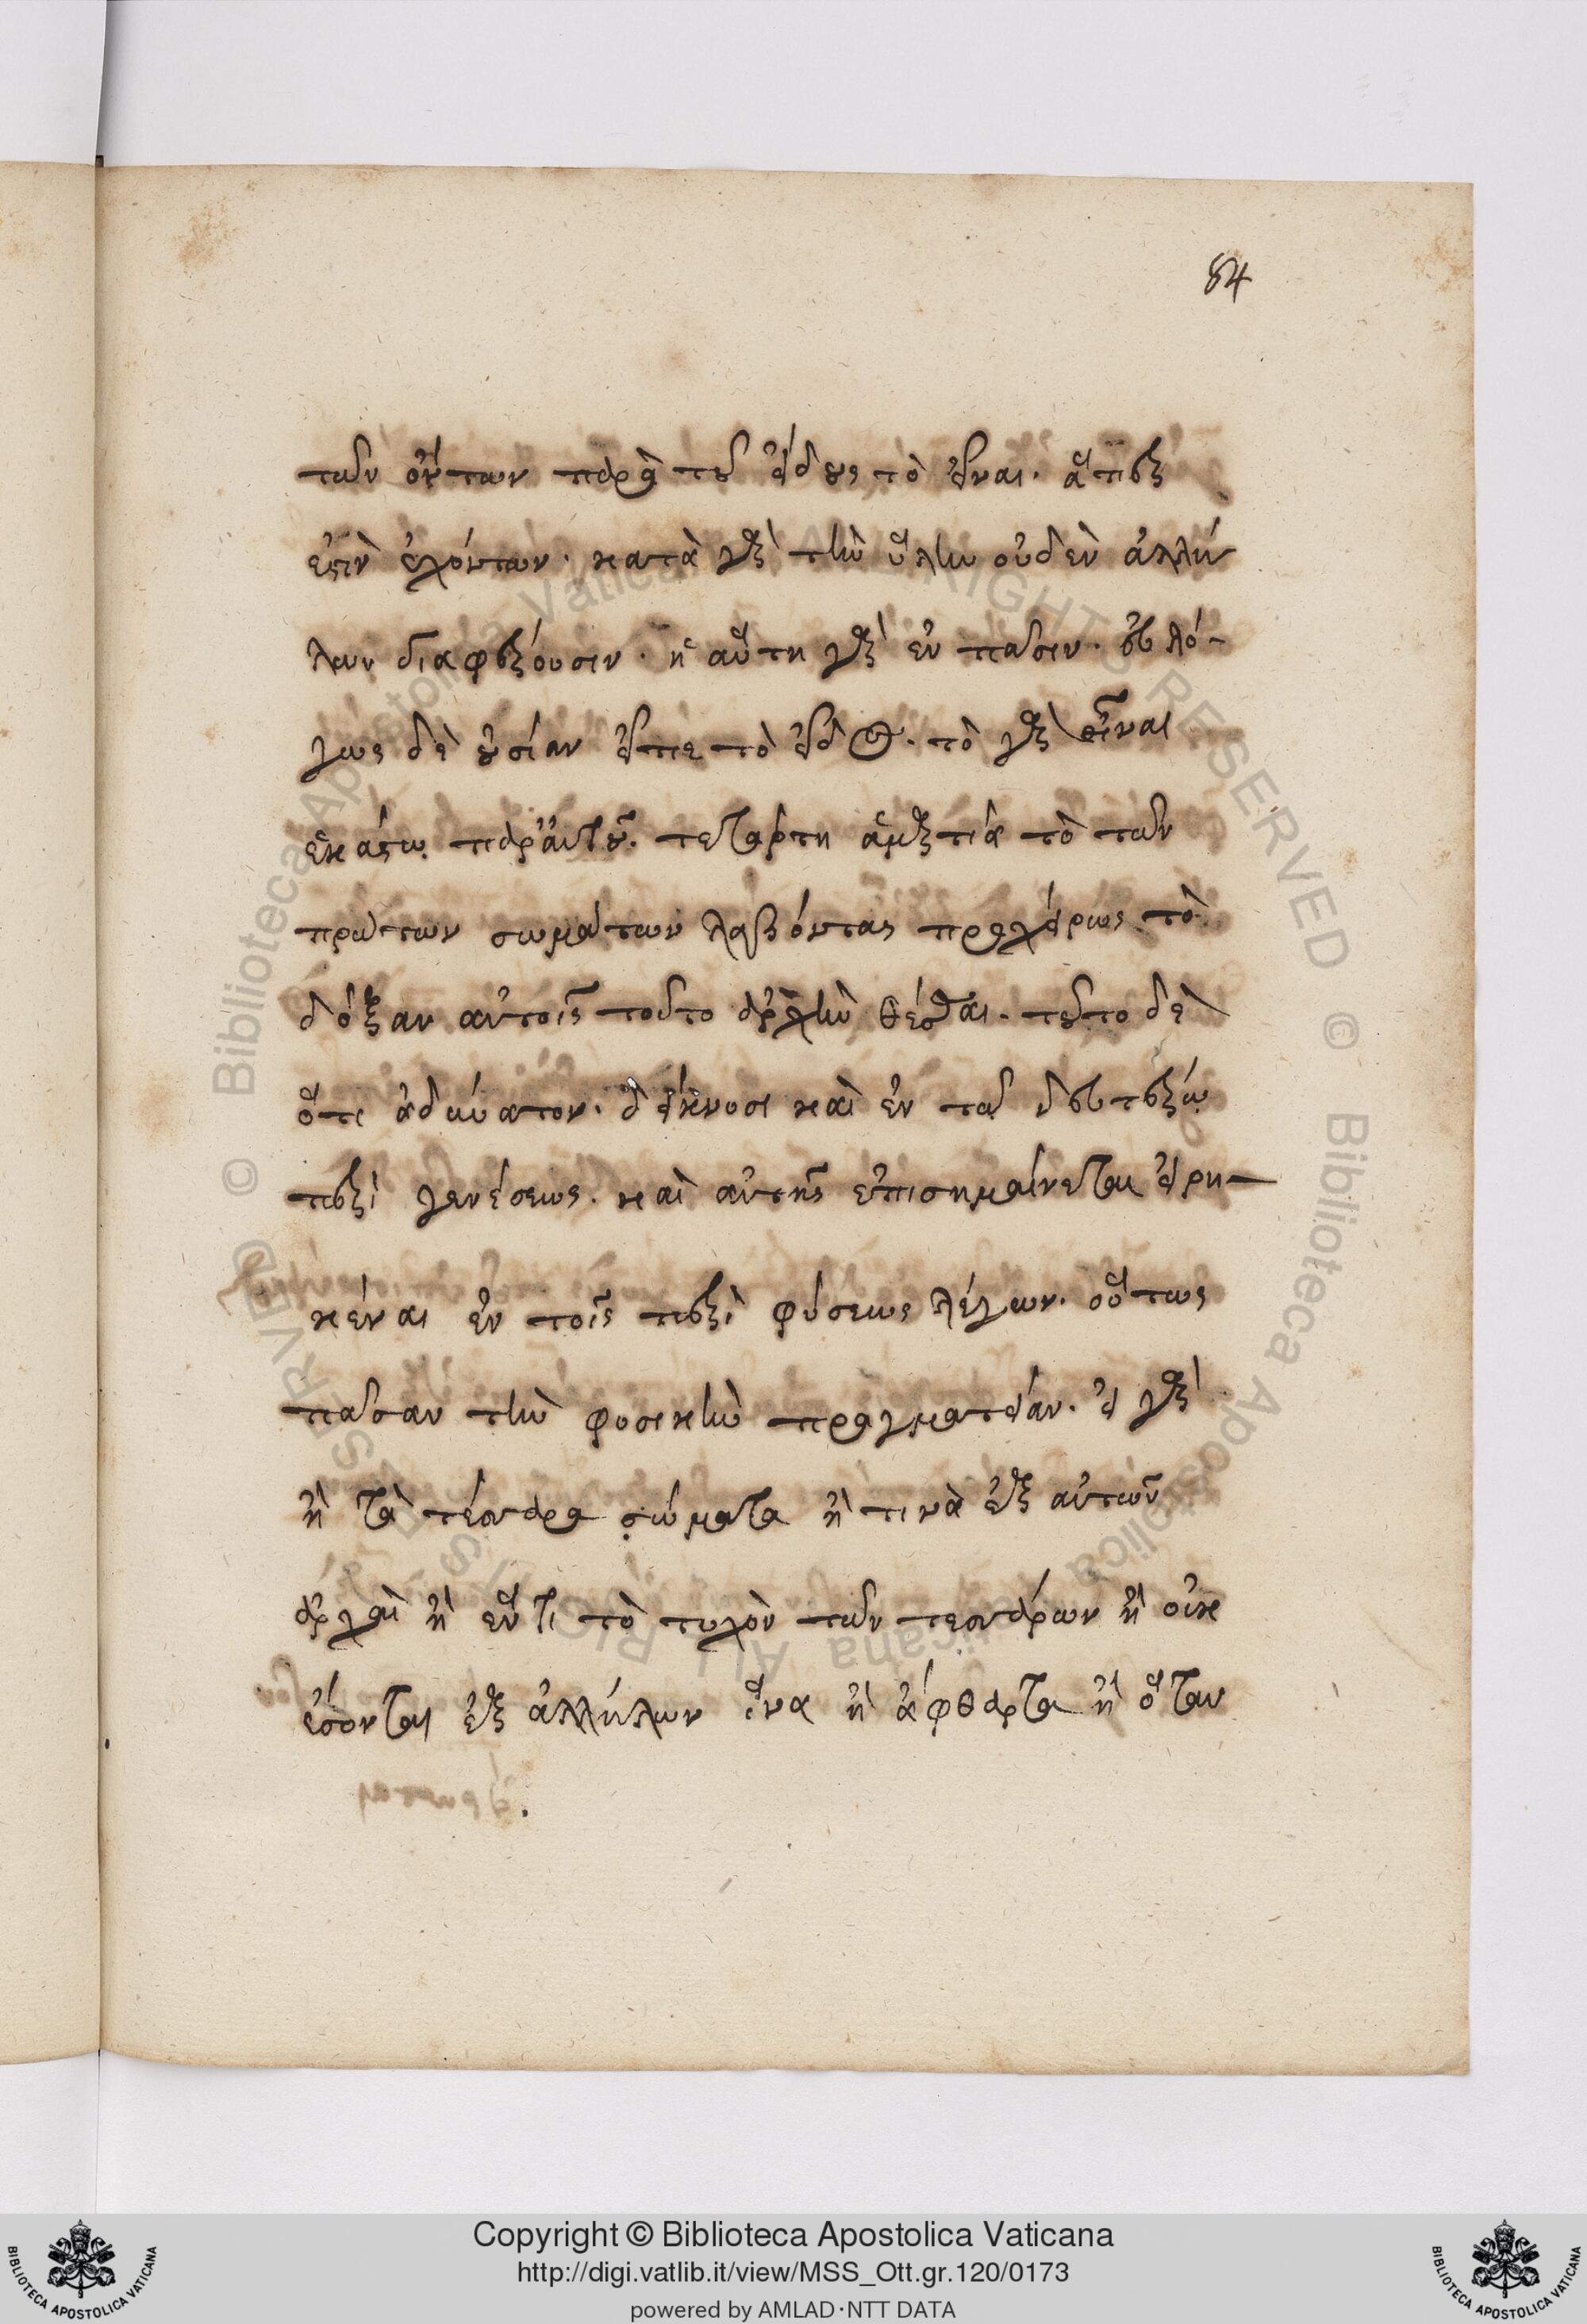 84
τῶν ὄντων παρὰ τοῦ εἴδους τὸ εἶναι· ἅπερ
ἐστὶν ἐχόντων· κατὰ γὰρ τὴν ὕλην οὐδὲν ἀλλή
λων διαφέρουσιν· ἡ αὐτὴ γὰρ ἐν πᾶσιν· εὐλό-
γως δὲ οὐσίαν εἶπε τὸ εἶδος· τὸ γὰρ εἶναι
ἑκάστῳ παρ' αὐτοῦ· τετάρτη ἁμαρτία τὸ τῶν
πρώτων σωμάτων λαβόντας προχείρως τὸ
δόξαν αὐτοῖς τοῦτο ἀρχὴν θέσθαι· τοῦτο δὲ
ὅτι ἀδύνατον· δείκνυσι καὶ ἐν τῷ δευτέρῳ
περὶ γενέσεως· καὶ αὐτῆς ἐπισημαίνεται εἰρη-
κέναι ἐν τοῖς περὶ φύσεως λέγων· οὕτως
πᾶσαν τὴν φυσικὴν πραγματείαν· εἰ γὰρ
ἢ τὰ τέσσαρα σώματα ἢ τινὰ ἐξ αὐτῶν
ἀρχαὶ ἢ ἕν τι τὸ τυχὸν τῶν τεσσάρων ἢ οὐκ
ἔσονται ἐξ ἀλλήλων ἵνα ἢ ἄφθαρτα ἢ ὅταν
Copyright © Biblioteca Apostolica Vaticana
http://digi.vatlib.it/view/MSS_Ott.gr.120/0173
powered by AMLAD·NTT DATA
BIBLIOTECA APOSTOLICA VATICANA
BIBLIOTECA APOSTOLICA VATICANA